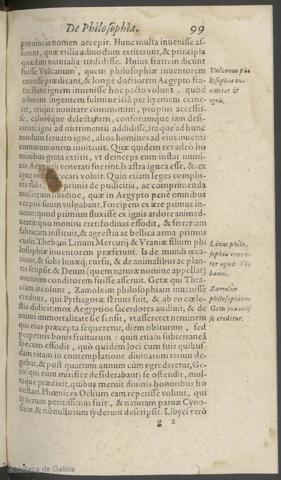 De Philosophia. 99
prouincia nomen accepit. Hunc multa inuenisse as-
serunt, quæ vitis admodum extiterunt, & principia
quædam naturalia tradidisse. Huius fratrem dicunt
fuisse Vulcanum, quem philosophiæ inuentorem
extitisse prædicant, & longe doctiorem Ægypto fra-
tre. Hunc ignem inuenisse hoc pacto volunt, quod
arborem ingentem fulmine icta per hyemem cerne-
ret, eiusque nouitate commotum, propius accessis-
se, caloreque delectatum, consumtæque iam desi-
nenti igni ad nutrimentū addidisse, itaque ad hunc
modum seruato igne, alios homines ad eius inuenti
communionem inuitauit. Quæ quidem res adeo ho
minibus grata extitit, vt deinceps eum instar numi-
nis Aegyptij venerati fuerint. Is astra ignea esse, & ex
igne vocari voluit. Quin etiam leges comple-
primis de pudicitia, ac comprimenda
mulierum libidine, quæ in Aegypto penè omnibus
corpus suum vulgabant. Forcipem ex ære primus in-
uenit: quod primum fluxisse ex ignis ardore animad-
uertit: quo moniti creditoribus effodit, & ferrariam
fabricam instituit, & agrestia ac bellica arma primus
cudit. Thebani Linum Mercurij & Vraniæ filium phi
losophiæ inuentorem præferunt. Is de mundi creatio-
ne, & solis lunæq; cursu, & de animalibus ac plan-
tis scripsit. & Deum (quem naturæ nomine appellat)
omnium conditorem fuisse asserit. Getæ qui Thra-
ciam incolunt, Zamolxim philosophiam inuenisse
credunt, qui Pythagoræ seruus fuit, & ab eo cœle-
stia didicit: mox Aegyptios sacerdotes audiuit, & de
animi immortalitate sic sensit, vt assereret neminem
qui eius præcepta sequeretur, diem obiturum, sed
perpetuis bonis fruiturum: quin etiam subterraneū
specum effodit, quò quidem loci cum suis quibus-
dam vitam in contemplatione diuinarum rerum de-
gebat, & post quartum annum cùm egrederetur, Ge-
tis (qui eum mirificè desiderabant) se ostendit, mul-
taque prædixit, quibus meruit diuinis honoribus ho
nestari. Phœnices Ochum eam reperisse volunt, qui
syderum peritissimus fuit, & naturam paruæ Cyno-
suræ, & nonnullorum syderum descripsit. Libyci verò
g 2
Vulcanus phi
losophiæ in-
uentor &
ignis.
Linus philo-
sophiæ inuen-
tor apud The
banos.
Zamolxin
philosophiam
Getis inuenis
se creditur.
Biblioteca de Galicia